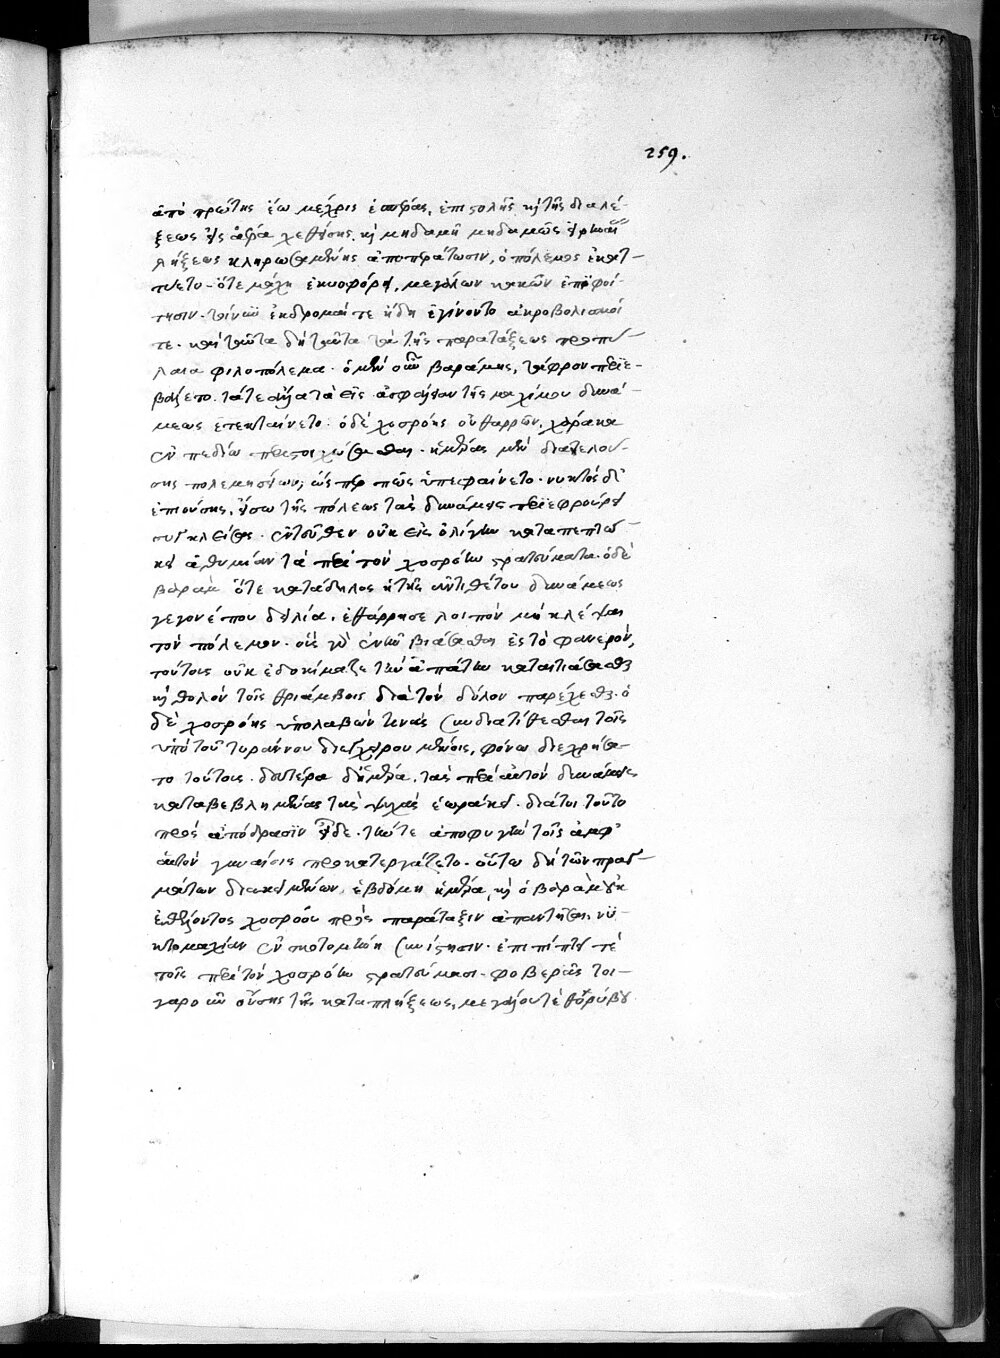 259.
ἀπὸ πρώτης ἕω μέχρις ἑσπέρας, ἐπιστολῆς καὶ τῆς διαλέ-
ξεως ἐς ἑσπέραν χεθείσης. καὶ μηδαμῆ μηδαμῶς
λήξεως κληρωσαμένης ἀποπεράτωσιν, ὁ πόλεμος ἐκρατ-
τύετο. ὅτε μάχη ἐκυοφόρει, μεγάλων κακῶν ἐπιφοί-
τησιν. ἐκδρομαί τε ἤδη ἐγίνοντο ἀκροβολισμοί
τε. καὶ ταῦτα δὴ ταῦτα τὰ τῆς παρατάξεως προπύ-
λαια φιλοπόλεμα. ὁ μὲν οὖν βαράμης, τάφρον περιε-
βάλετο. τά τε ἄλλα τὰ εἰς ἀσφάλειαν τῆς μαχίμου δυνά-
μεως ἐπεκταίνετο. ὁ δὲ χοσρόης οὐ θαρρῶν, χάρακα
ἐν πεδίω περιστοιχίσασθαι. ἡμέρας μὲν διατελού-
σης πολεμησείων, ὥσπερ πως ὑπεφαίνετο. νυκτὸς δ'
ἐπιούσης, εἴσω τῆς πόλεως τὰς δυνάμεις περιεφρούρει
συγκλείσας. ἐντεῦθεν οὐκ εἰς ὀλίγην καταπέπτω-
κεν ἀθυμίαν τὰ περὶ τὸν χοσρόην στρατεύματα. ὁ δὲ
βαράμ ὅτε κατάδηλος ἡ τῆς ἀντιθέτου δυνάμεως
γεγονέ που δειλία, ἐθάρρησε λοιπὸν μὴ κλέψαι
τὸν πόλεμον. οὓς γὰρ ἐνῆν βιάσασθαι ἐς τὸ φανερόν,
τούτοις οὐκ ἐδοκίμαζε τὴν ἀπάτην καταιτιάσασθαι
καὶ θολὸν τοῖς θριάμβοις διὰ τὸν δόλον παρέχεσθαι. ὁ
δὲ χοσρόης ὑπολαβών τινας συνδιατίθεσθαι τοῖς
ὑπὸ τοῦ τυράννου διεγχειρουμένοις, φόνω διεχρήσα-
το τούτους. δευτέρα δ' ἡμέρα, τὰς περὶ αὐτὸν δυνάμεις
καταβεβλημένας τὰς ψυχὰς ἑωράκει. διάτοι τοῦτο
πρὸς ἀπόδρασιν εἶδε. τήν τε ἀποφυγὴν τοῖς ἀμφ'
αὐτὸν γυναίοις προκατεργάζετο. οὕτω δὴ τῶν πραγ-
μάτων διακειμένων, ἑβδόμη ἡμέρα, καὶ ὁ βαρὰμ οὐκ
ἐθέλοντος χοσρόου πρὸς παράταξιν ἀπαντῆσαι, νυ-
κτομαχίαν ἐν σκοτομήνη συνίστησιν. ἐπιπίπτει τέ
τοῖς περὶ τὸν χοσρόην στρατεύμασι. φοβερᾶς τοι-
γαροῦν οὔσης τῆς καταπλήξεως, μεγάλου τὲ θορύβου